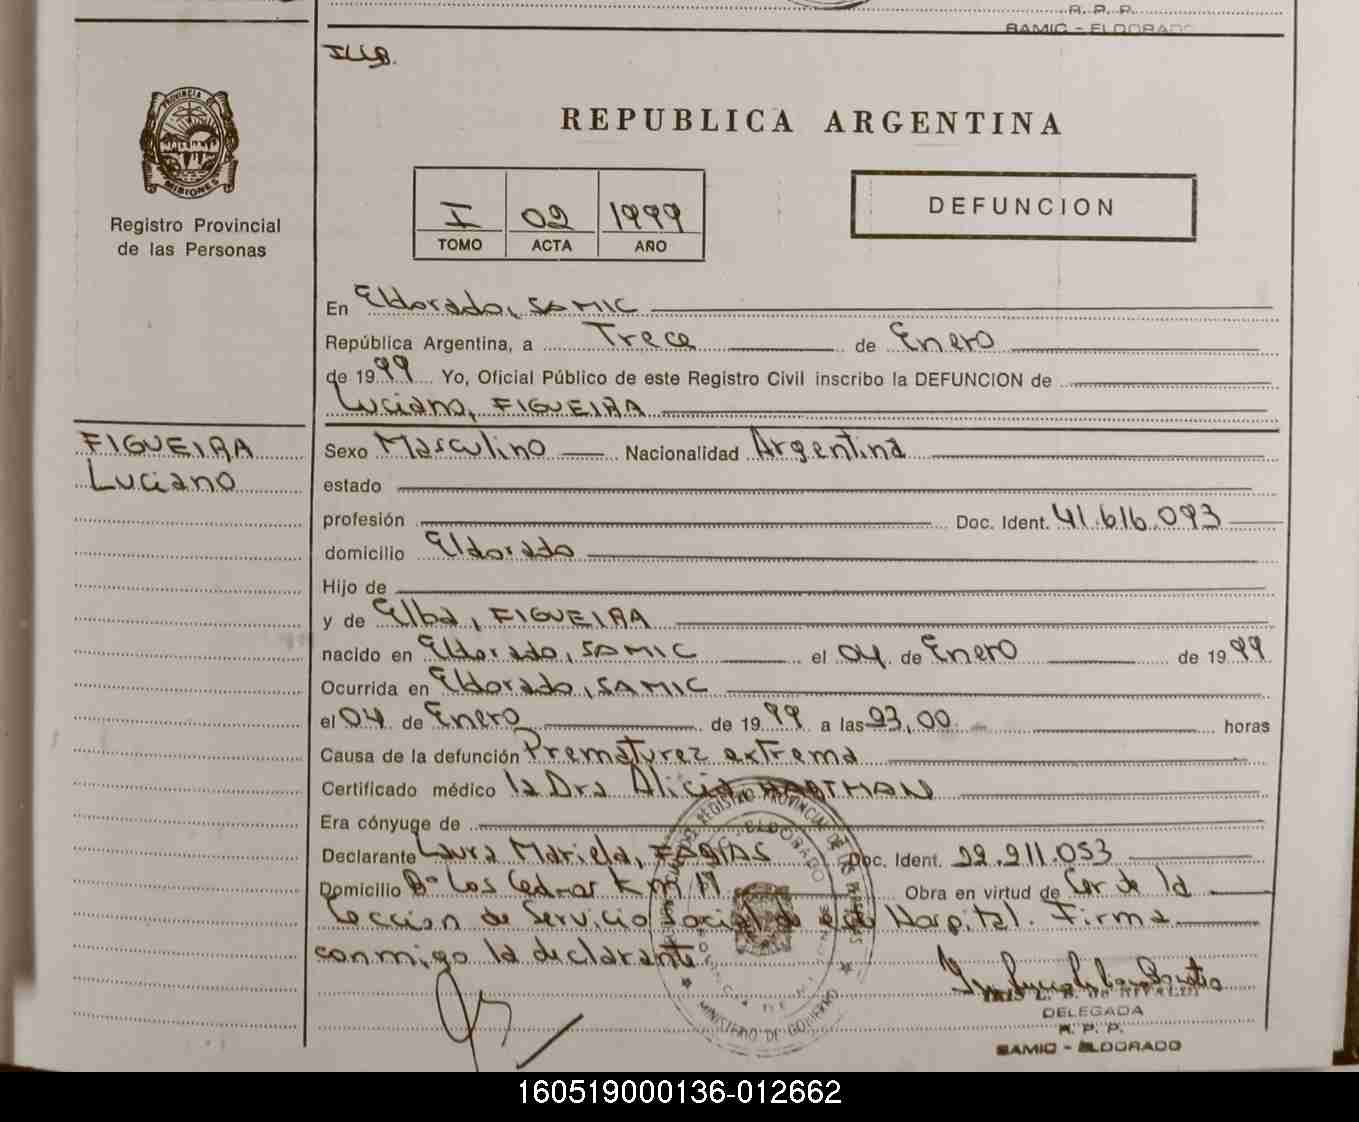 R. P. P.
SAMIC - ELDORADO
REPUBLICA ARGENTINA
PROVINCIA DE
MISIONES
Registro Provincial
de las Personas
I 02 1999
TOMO ACTA AÑO
DEFUNCION
En Eldorado, SAMIC
República Argentina, a Trece de Enero
de 1999 Yo, Oficial Público de este Registro Civil inscribo la DEFUNCION de
Luciano, FIGUEIRA
FIGUEIRA
Luciano
Sexo Masculino Nacionalidad Argentina
estado
profesión Doc. Ident. 41.616.093
domicilio Eldorado
Hijo de
y de Elba, FIGUEIRA
nacido en Eldorado, SAMIC el 04 de Enero de 1999
Ocurrida en Eldorado, SAMIC
el 04 de Enero de 1999 a las 23,00 horas
Causa de la defunción Prematurez extrema
Certificado médico la Dra Alicia HARTMAN
Era cónyuge de
Declarante Laura Mariela, Doc. Ident. 22.211.053
Domicilio Bº Los Cedros Km 11 Obra en virtud de Cer de la
Seccion de Servicio social de este Hospital. Firma
conmigo la declarante
REGISTRO PROVINCIAL DE LAS PERSONAS
ELDORADO
MINISTERIO DE GOBIERNO
DELEGADA
R. P. P.
SAMIC - ELDORADO
160519000136-012662